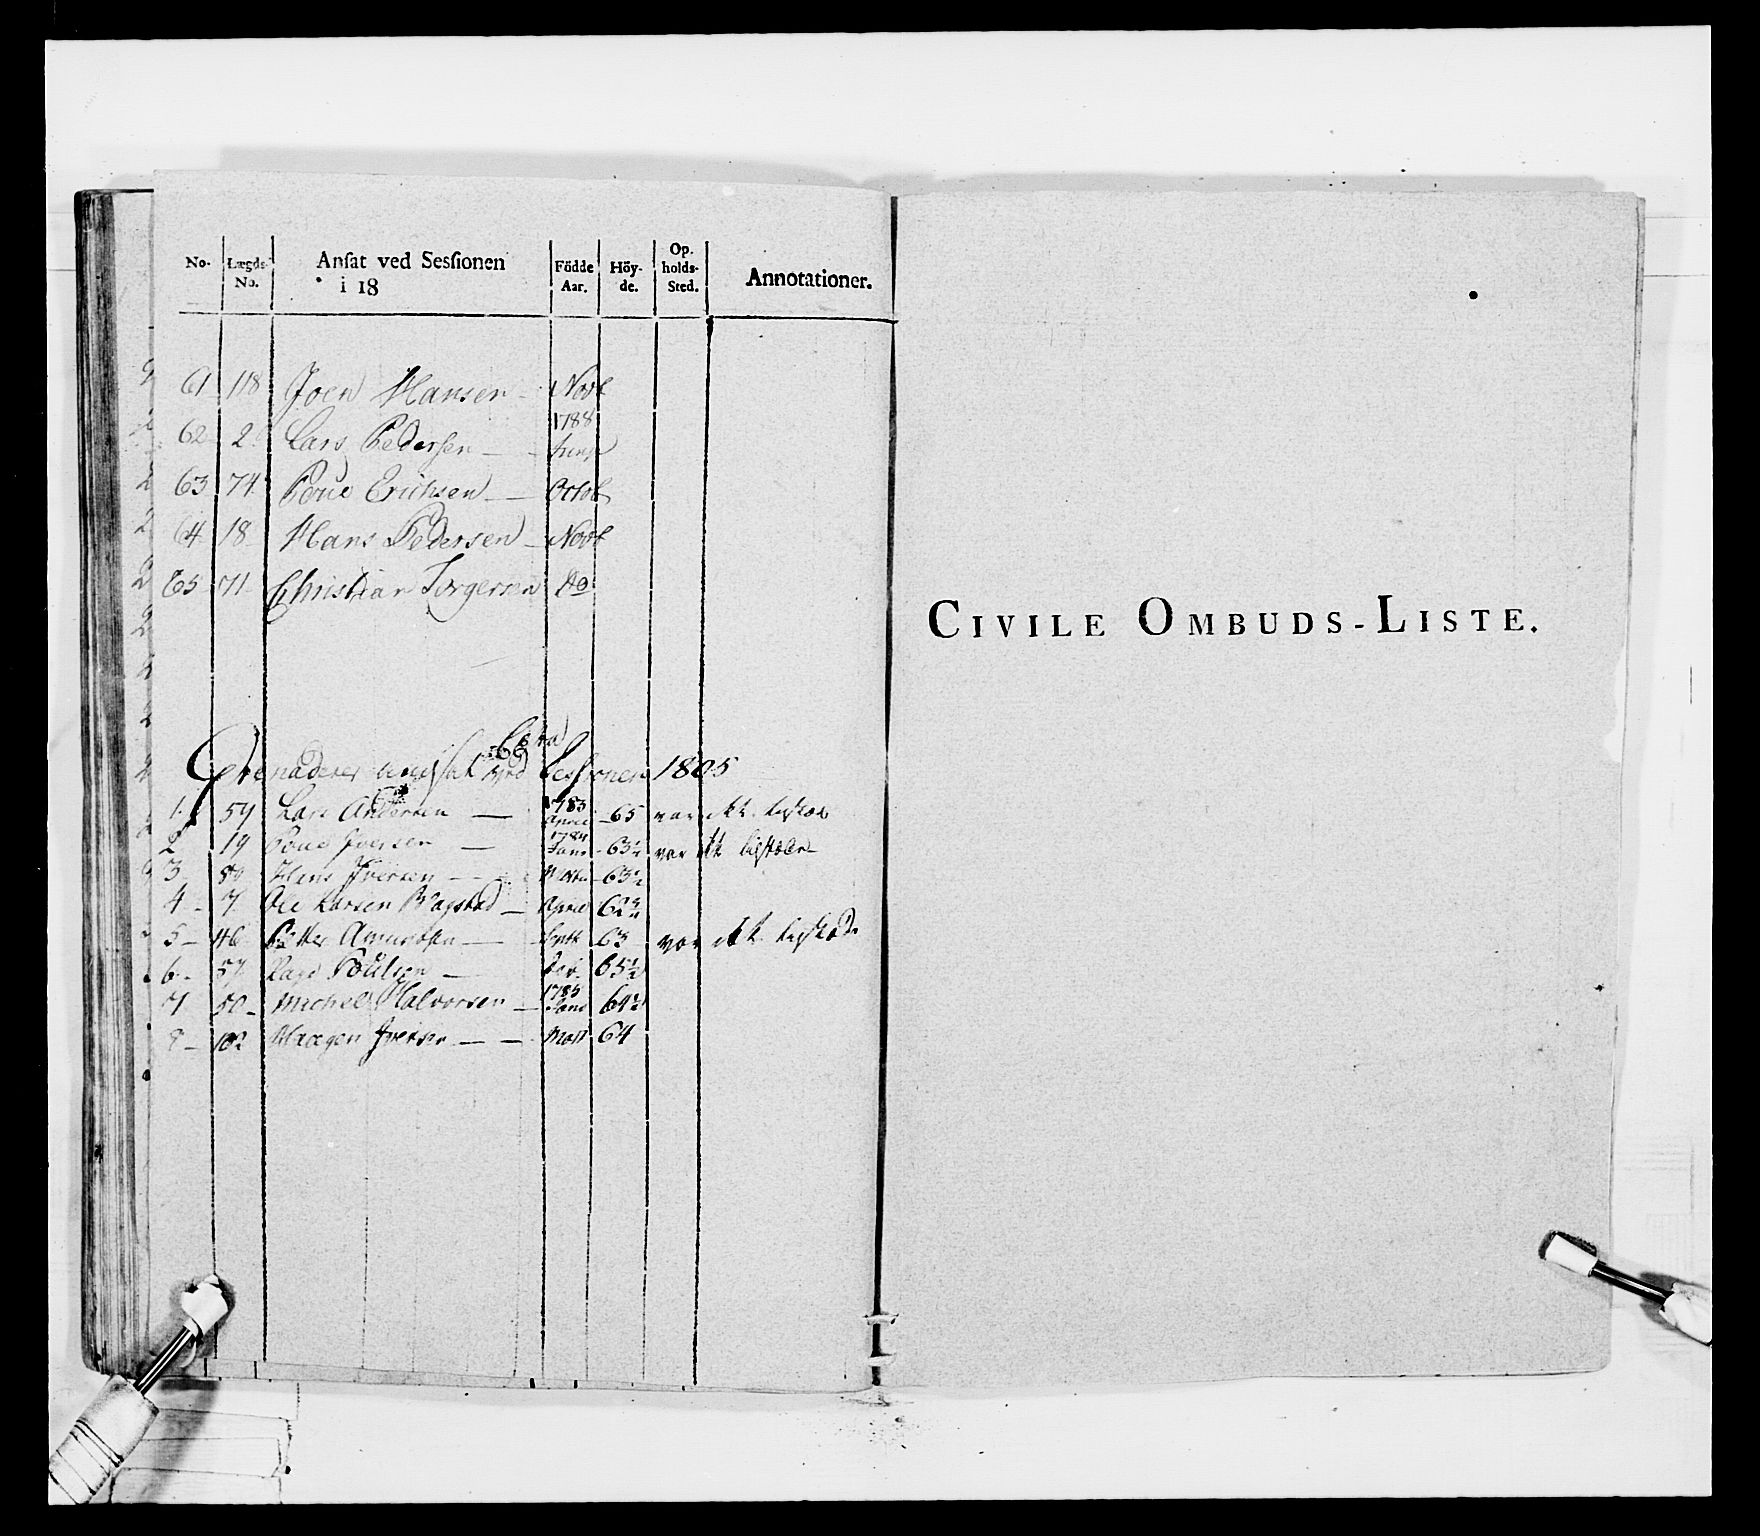 No. Lægds No. Ansat ved Sessionen i 18 Födde Aar. Höyde. Opholds-Sted. Annotationer.
61 118 Joen Hansen - Novb
1788
62 2 Lars Pedersen -
63 74 Poue Erichsen - Octob
64 18 Hans Pedersen - Novb
65 71 Christian Torgersen Do
Extra
Grenaderer ved Sessionen 1805
1. 59 Lars Andersen - 1783 April - 65 var ikke
2 19 Poue Iversen - 1784 Janr - 63½ var ikke
3 Hans Iversen - 63½
4 - 7 Ole Larsen - April 62¾
5 - 46 Petter - Septb 63 var ikke
6 - 57 Poulsen - 65½
7 50 - Michel Halvorsen - 1785 Janr 64½
8 - 102 Iversen - - Mart 64
CIVILE OMBUDS-LISTE.